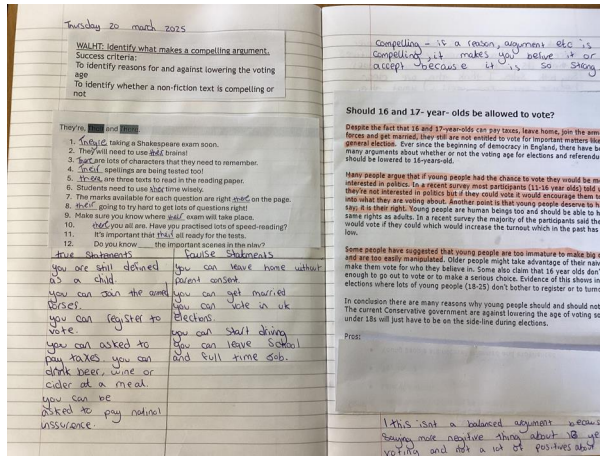 Thursday 20 march 2025
WALHT: Identify what makes a compelling argument.
Success criteria:
To identify reasons for and against lowering the voting
age
To identify whether a non-fiction text is compelling or
not
They're, their and there
1. taking a Shakespeare exam soon.
2. They will need to use their brains!
3. are lots of characters that they need to remember.
4. their spellings are being tested too!
5. there are three texts to read in the reading paper.
6. Students need to use time wisely.
7. The marks available for each question are right on the page.
8. going to try hard to get lots of questions right!
9. Make sure you know where their exam will take place.
10. you all are. Have you practised lots of speed-reading?
11. It's important that are ready for the tests.
12. Do you know ___ the important scenes in the play?
True Statements
you are still defined
as a child.
you can Join the armed
forses.
you can register to
vote.
you can asked to
pay taxes. you can
drink beer, wine or
cider at a meal.
you can be
asked to pay
Statments
you can leave home without
parent consent.
you can get married
you can vote in uk
elections.
you can start driving
you can leave School
and full time Job.
compelling - if a reason, argument etc is
compelling, it makes you belive it or
accept because it is so strong
Should 16 and 17- year- olds be allowed to vote?
Despite the fact that 16 and 17-year-olds can pay taxes, leave home, join the arm
forces and get married, they still are not entitled to vote for important matters like
general election. Ever since the beginning of democracy in England, there have be
many arguments about whether or not the voting age for elections and referendu
should be lowered to 16-years-old.
Many people argue that if young people had the chance to vote they would be m
interested in politics. In a recent survey most participants (11-16 year olds) told
they're not interested in politics but if they could vote it would encourage them t
into what they are voting about. Another point is that young people deserve to h
say, it is their right. Young people are human beings too and should be able to h
same rights as adults. In a recent survey the majority of the participants said the
would vote if they could which would increase the turnout which in the past has
low.
Some people have suggested that young people are too immature to make big
and are too easily manipulated. Older people might take advantage of their naiv
make them vote for who they believe in. Some also claim that 16 year olds don'
enough to go out to vote or to make a serious choice. Evidence of this shows in
elections where lots of young people (18-25) don't bother to register or to turn
In conclusion there are many reasons why young people should and should not
The current Conservative government are against lowering the age of voting so
under 18s will just have to be on the side-line during elections.
Pros:
this isnt a balanced argument becaus
saying more negitive thing about 16 ye
voting and not a lot of positives about